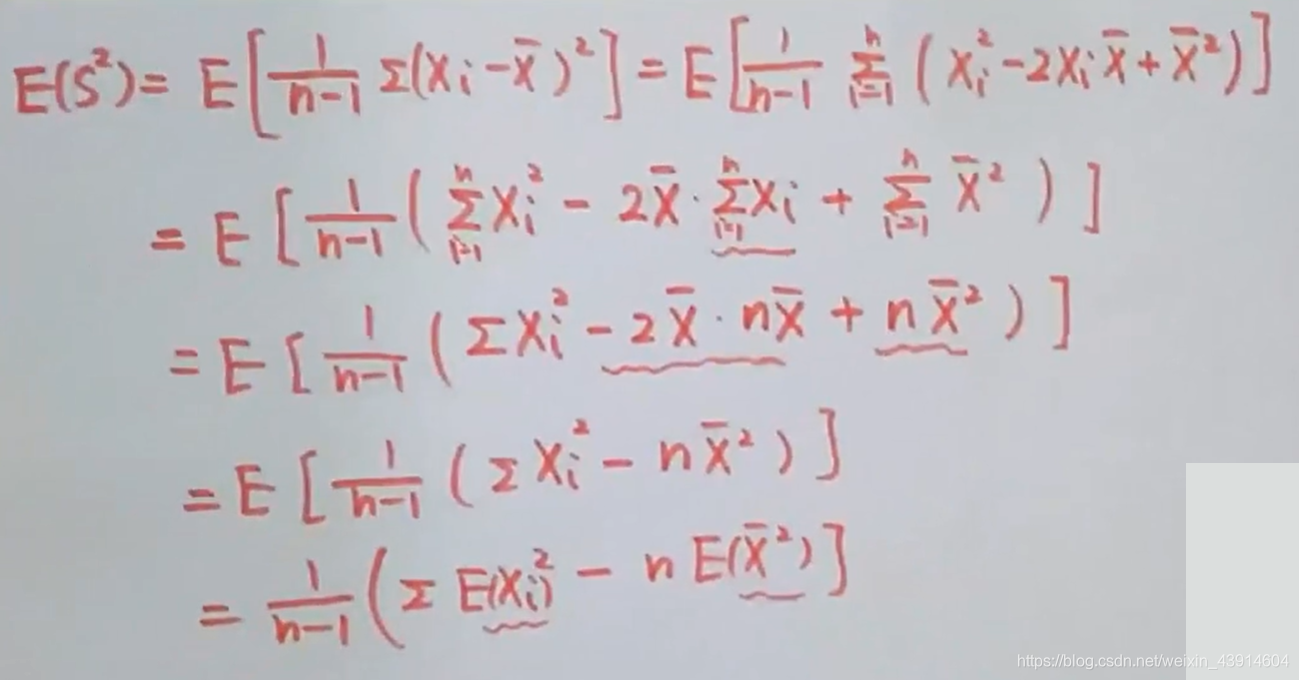 E(S²) = E[1/(n-1) Σ(Xi - X̄)²] = E[1/(n-1) Σ_{i=1}^{n} (Xi² - 2XiX̄ + X̄²)]
= E[1/(n-1) (Σ_{i=1}^{n} Xi² - 2X̄ · Σ_{i=1}^{n} Xi + Σ_{i=1}^{n} X̄²)]
= E[1/(n-1) (ΣXi² - 2X̄ · nX̄ + nX̄²)]
= E[1/(n-1) (ΣXi² - nX̄²)]
= 1/(n-1) (ΣE(Xi)² - nE(X̄²)]
https://blog.csdn.net/weixin_43914604